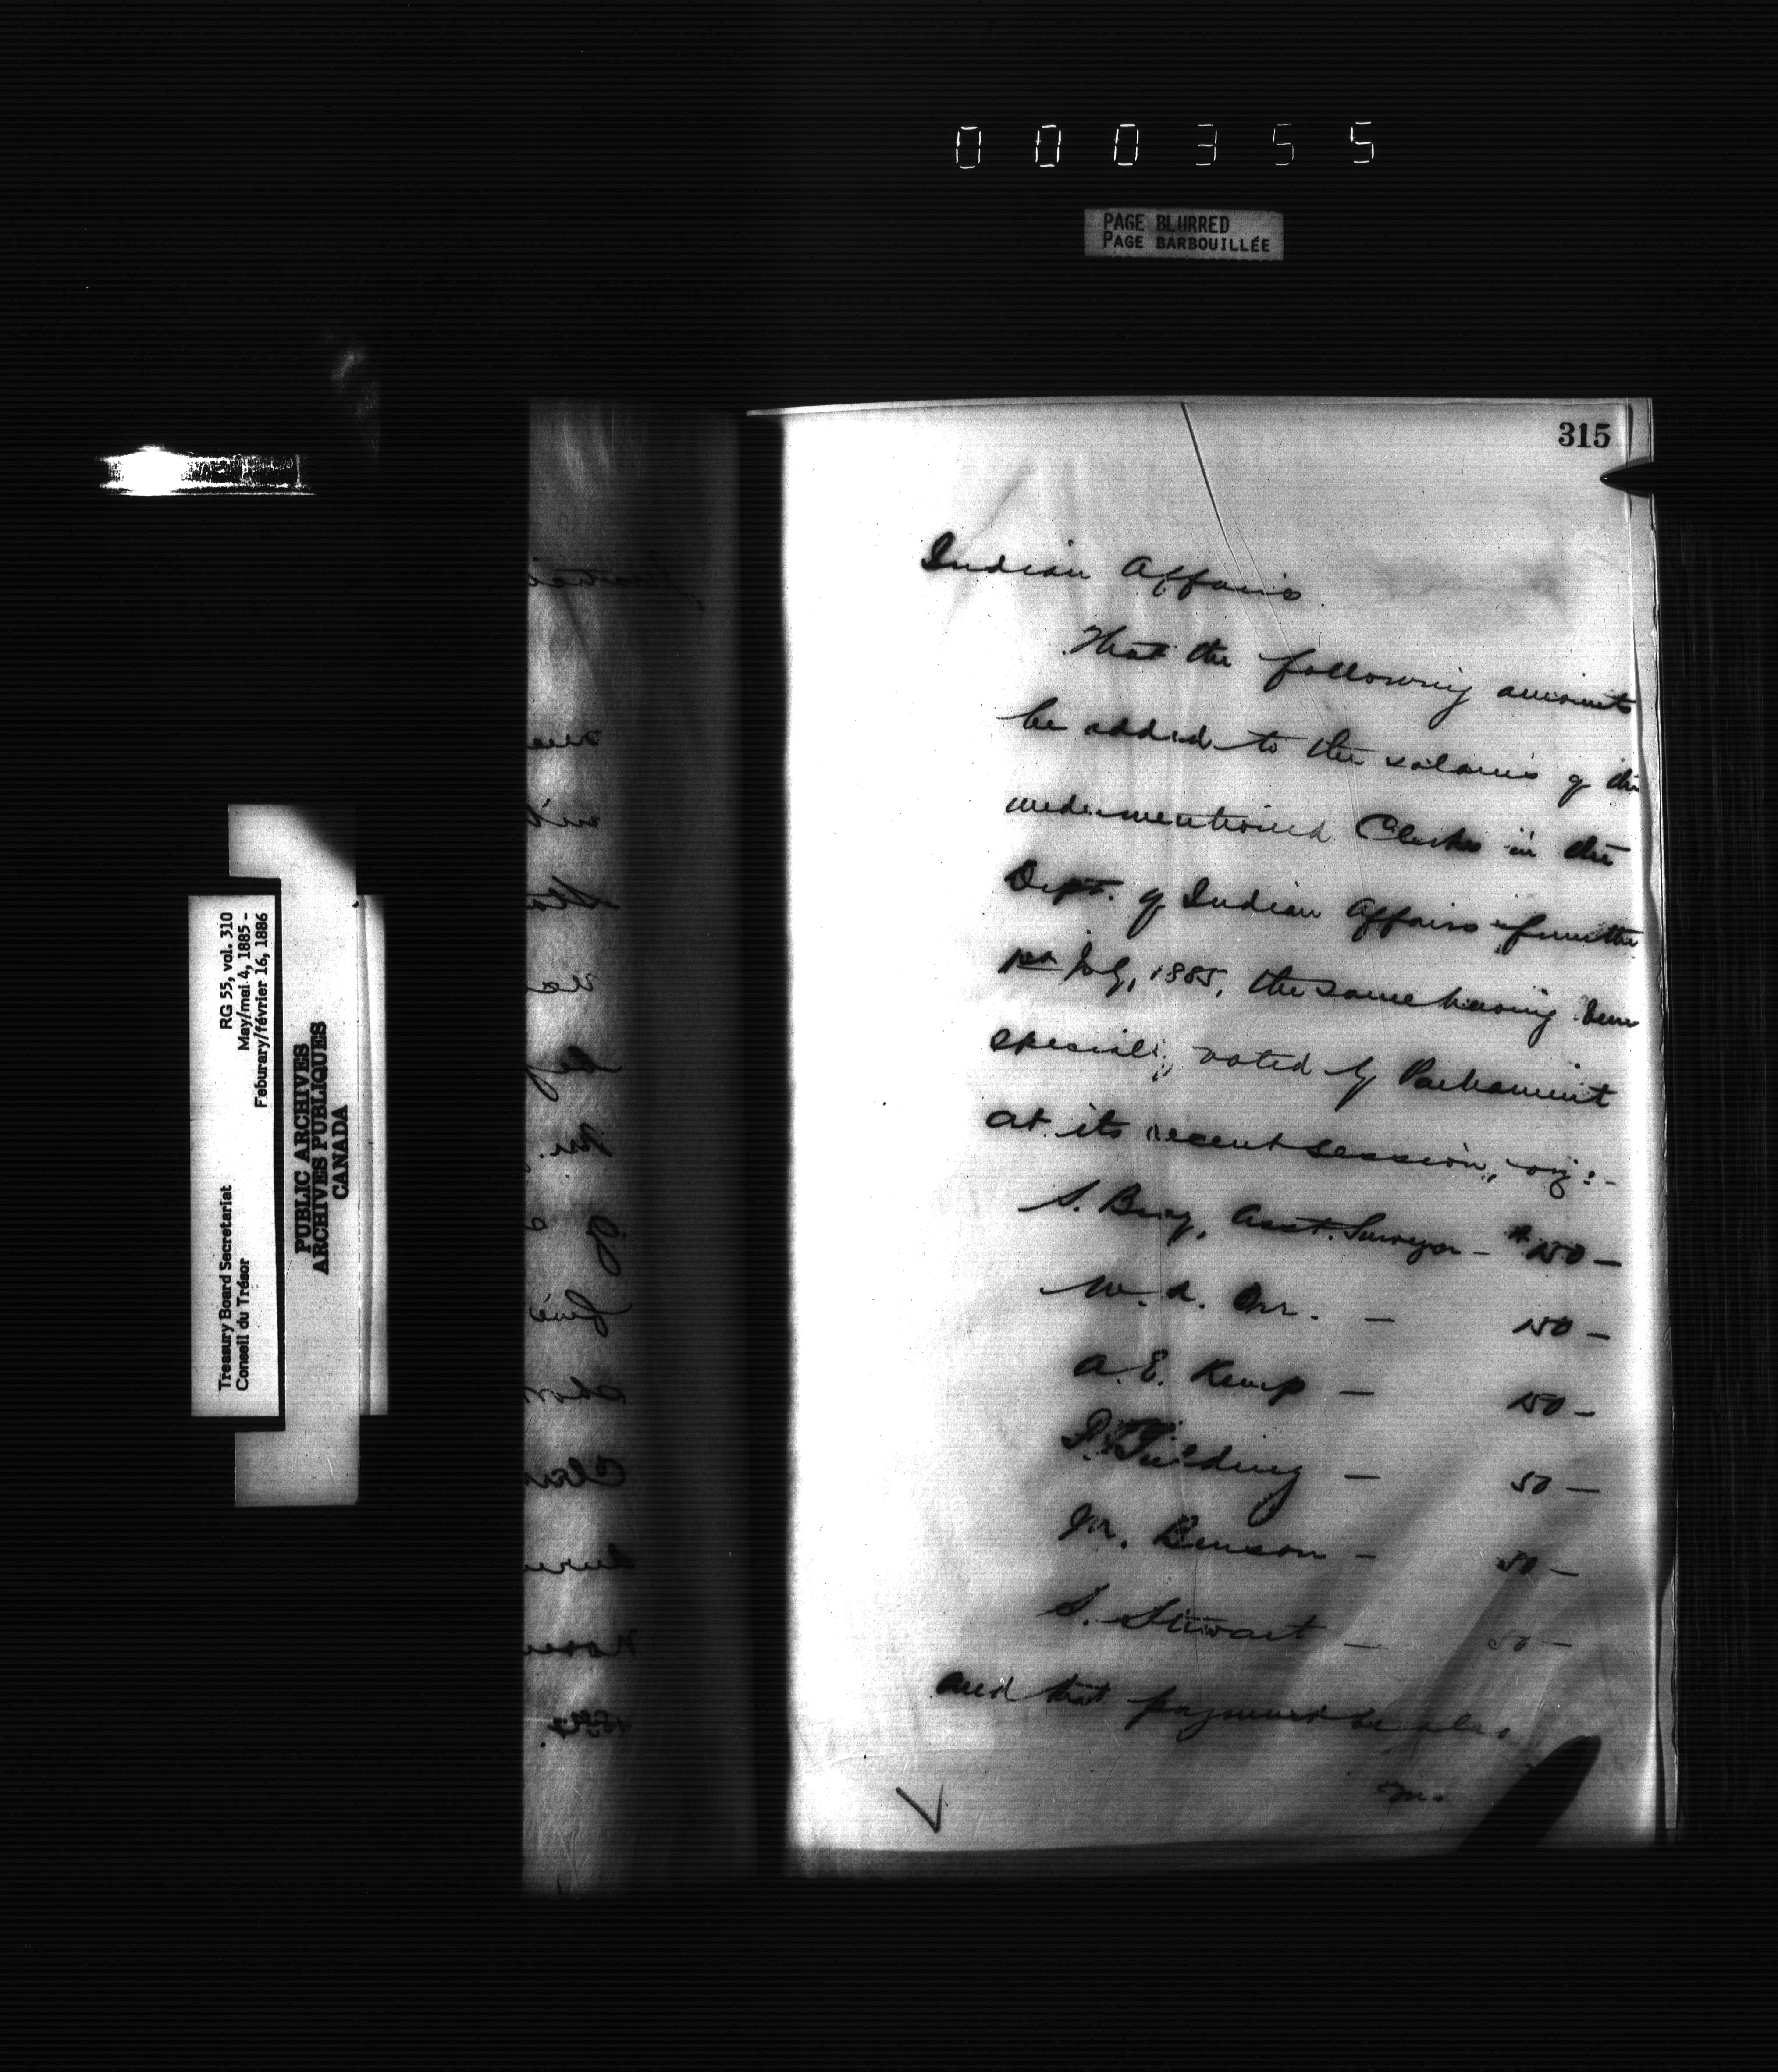 000355
PAGE BLURRED
PAGE BARBOUILLÉE
315
Indian Affairs.
That the following amounts
be added to the salaries of the
undermentioned Clerks in the
Dept. of Indian Affairs from the
1st July, 1885, the same having been
specially voted by Parliament
at its recent session, viz:-
S. Bray, Asst. Surveyor - $150 -
W. A. Orr. - 150 -
A. E. Kemp - 150 -
Fielding - 50 -
M. Benson - 50 -
S. Stewart - 50 -
and that payment be also
RG 55, vol. 310
May/mai 4, 1885 -
Feburary/février 16, 1886
Treasury Board Secretariat
Conseil du Trésor
PUBLIC ARCHIVES
ARCHIVES PUBLIQUES
CANADA